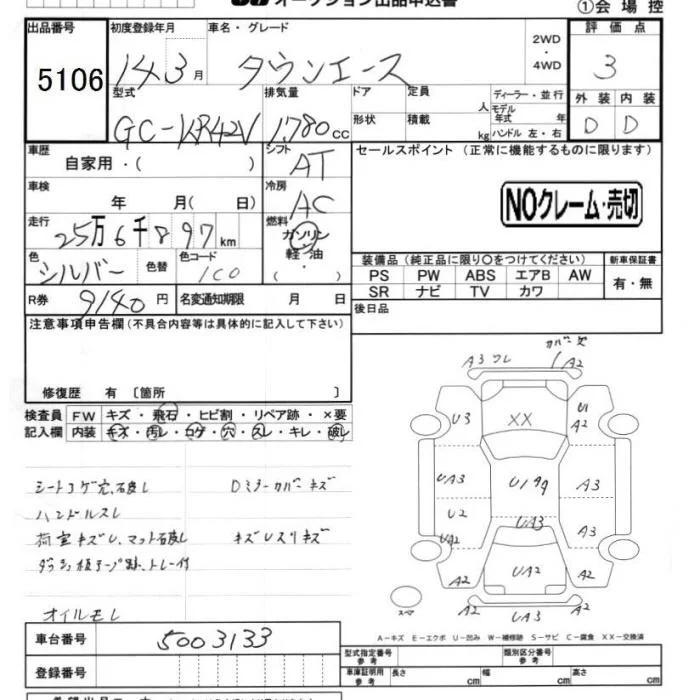 オークション出品申込書
①会場控
出品番号 初度登録年月 車名・グレード 2WD・4WD 評価点
5106 14 3月 タウンエース 3
型式 排気量 ドア 定員 人 ディーラー・並行 外装 内装
GC-KR42V 1,780cc 形状 積載 kg モデル年式 年 ハンドル 左・右 D D
車歴 自家用・( ) シフト AT セールスポイント (正常に機能するものに限ります)
車検 年 月( 日) 冷房 AC
NOクレーム・売切
走行 25万6千897km 燃料 ガソリン・軽油・
色 シルバー 色替 色コード 1C0
装備品 (純正品に限り○をつけてください) 新車保証書
PS PW ABS エアB AW 有・無
SR ナビ TV カワ
R券 9140円 名変通知期限 月 日
後日品
注意事項申告欄(不具合内容等は具体的に記入して下さい)
修復歴 有 〔箇所 〕
検査員 FW キズ・飛石・ヒビ割・リペア跡・×要
記入欄 内装 キズ・汚レ・コゲ・穴・スレ・キレ・破レ
シートコゲ穴、破レ Dミラーカバーキズ
ハンドルスレ
荷室キズU、マット破レ
オイルモレ
カバー欠
A3 ワレ A2
U3 XX U1 A2
UA3 A3
U2 UA3 A3
UA2
A2 UA2 A2
スペア A2 UA3 A2
A－キズ E－エクボ U－凹み W－補修跡 S－サビ C－腐食 XX－交換済
車台番号 5003133
型式指定番号 参考 類別区分番号 参考
登録番号
車庫証明用 参考 長さ cm 幅 cm 高さ cm